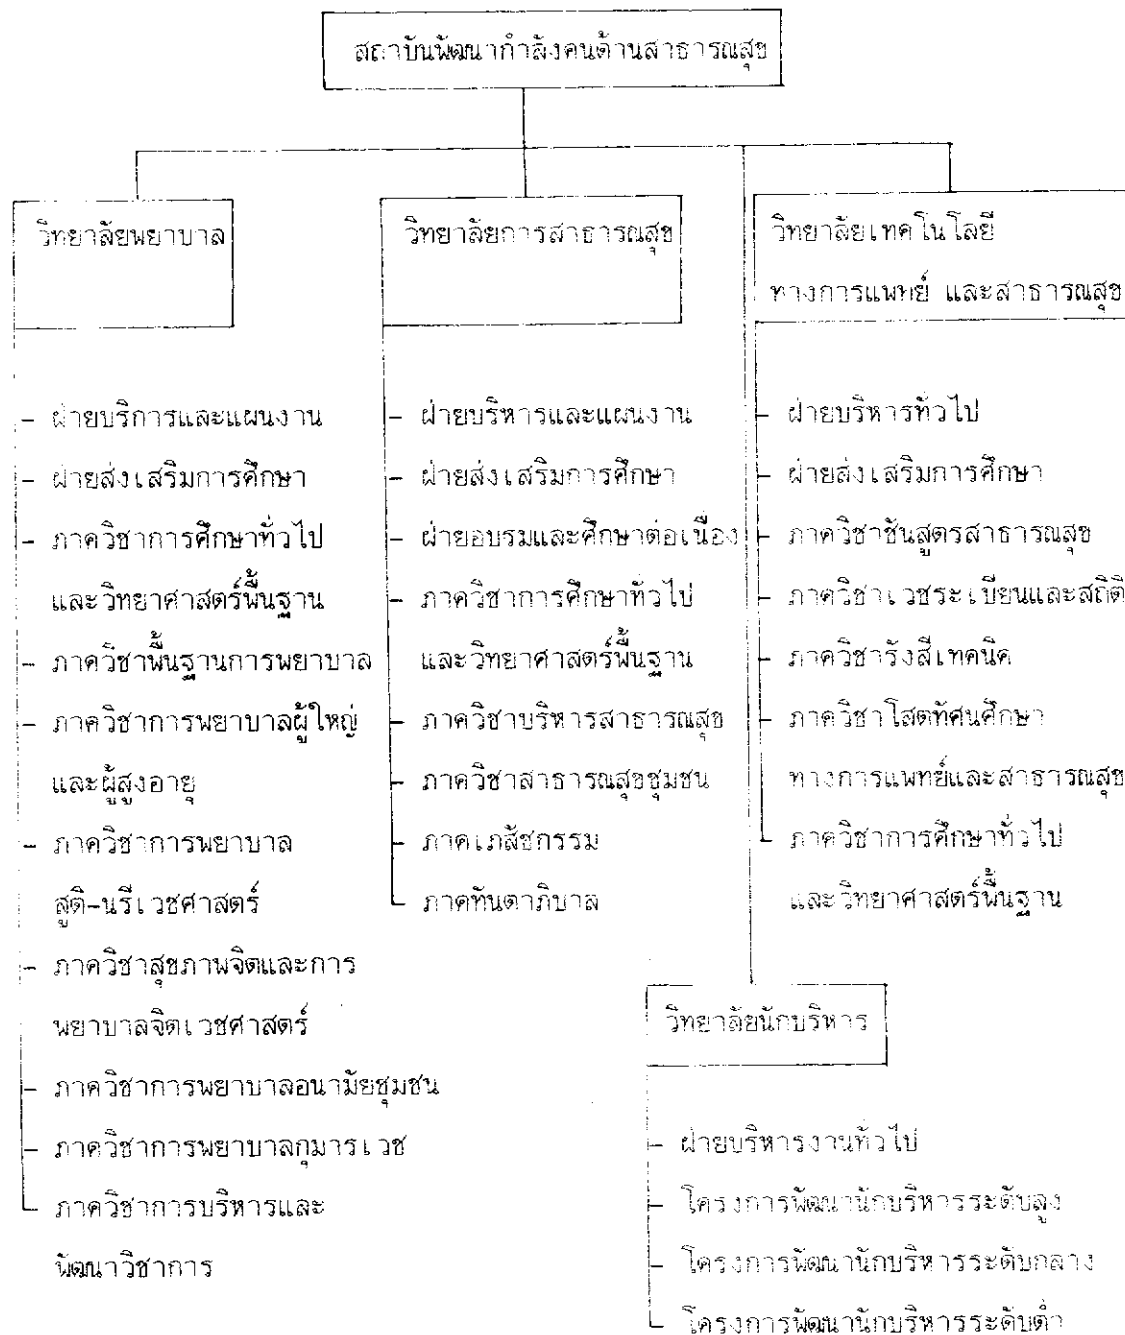 สถาบันพัฒนากำลังคนด้านสาธารณสุข
วิทยาลัยพยาบาล
- ฝ่ายบริการและแผนงาน
- ฝ่ายส่งเสริมการศึกษา
- ภาควิชาการศึกษาทั่วไป
และวิทยาศาสตร์พื้นฐาน
- ภาควิชาพื้นฐานการพยาบาล
- ภาควิชาการพยาบาลผู้ใหญ่
และผู้สูงอายุ
- ภาควิชาการพยาบาล
สูติ-นรีเวชศาสตร์
- ภาควิชาสุขภาพจิตและการ
พยาบาลจิตเวชศาสตร์
- ภาควิชาการพยาบาลอนามัยชุมชน
- ภาควิชาการพยาบาลกุมารเวช
- ภาควิชาการบริหารและ
พัฒนาวิชาการ
วิทยาลัยการสาธารณสุข
- ฝ่ายบริหารและแผนงาน
- ฝ่ายส่งเสริมการศึกษา
- ฝ่ายอบรมและศึกษาต่อเนื่อง
- ภาควิชาการศึกษาทั่วไป
และวิทยาศาสตร์พื้นฐาน
- ภาควิชาบริหารสาธารณสุข
- ภาควิชาสาธารณสุขชุมชน
- ภาคเภสัชกรรม
- ภาคทันตาภิบาล
วิทยาลัยเทคโนโลยี
ทางการแพทย์ และสาธารณสุข
- ฝ่ายบริหารทั่วไป
- ฝ่ายส่งเสริมการศึกษา
- ภาควิชาชันสูตรสาธารณสุข
- ภาควิชาเวชระเบียนและสถิติ
- ภาควิชารังสีเทคนิค
- ภาควิชาโสตทัศนศึกษา
ทางการแพทย์และสาธารณสุข
- ภาควิชาการศึกษาทั่วไป
และวิทยาศาสตร์พื้นฐาน
วิทยาลัยนักบริหาร
- ฝ่ายบริหารงานทั่วไป
- โครงการพัฒนานักบริหารระดับสูง
- โครงการพัฒนานักบริหารระดับกลาง
- โครงการพัฒนานักบริหารระดับต่ำ